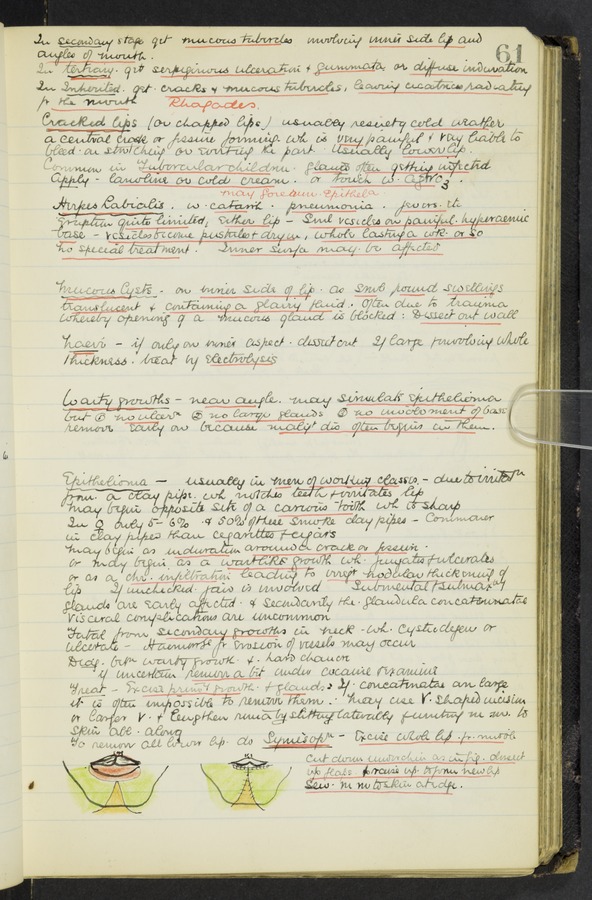 61
In secondary stage get mucous tubercles involving inner side lip and
angles of mouth.
In tertiary get serpiginous ulceration & gummata or diffuse induration
In Inherited get cracks & mucous tubercles, leaving cicatrices radiating
fr the mouth Rhagades.
Cracked lips (or chapped lips) usually result of cold weather
a central crack or fissure forming wh is very painful & v liable to
bleed on stretching or everting the part. Usually lower lip.
Common in Tubercular children. glands often getting infected
Apply - lanoline or cold cream. or touch w. AgNO3.
may forerun Epithela
Herpes Labialis. w. catarrh. pneumonia. fevers. etc
Eruption quite limited, either lip - Sml vesicles on painful. hyperaemic
base - vesicles become pustules & dry in, whole lasting a wk. or so
no special treatment. Inner surfa may be affected
Mucous Cysts. on inner side of lip. as smll round swellings
translucent & containing a glairy fluid. Often due to trauma
whereby opening of a mucous gland is blocked: Dissect out wall
Naevi - if only on inner aspect. dissect out If large & involving whole
thickness. treat by Electrolysis
Warty growths - near angle. may simulate Epithelioma
but ① no ulcern ② no large glands ③ no involvment of base
remove early on because maligt dis often begins in them.
Epithelioma - usually in men of working classes. - due to irritatn
from a clay pipe. wh notches teeth & irritates lip
may begin opposite site of a carious tooth wh is sharp
In ♀ only 5-6% & 50% of these smoke clay pipes - Commoner
in clay pipes than cigarettes & cigars
may begin as induration around a crack or fissure.
or may begin as a wartlike growth wh. fungates & ulcerates
or as a chr. infiltration leading to irreg nodular thickening of
lip If unchecked jaw is involved Submental & submaxay
glands are early affected. & secondarily the glandula concatenatae
Visceral complications are uncommon
Fatal from secondary growths in neck - wh. cystic degen or
ulcerate - Haemorrh fr Erosion of vessels may occur
Diag. betn warty growth & hard chancre
if uncertain remove a bit under cocaine & examine
Treat - Excise prim'y growth & glands: If concatinatae an large
it is often impossible to remove them ∴ may use V. shaped incision
or larger V. & lengthen rima by slitting laterally & uniting m m. to
skin all along
To remove all lower lip. do Symes opn - Excise whole lip fr mouth
Cut down under chin as in fig. dissect
up flaps & raise up to form new lip
Sew m m to skin at edge.